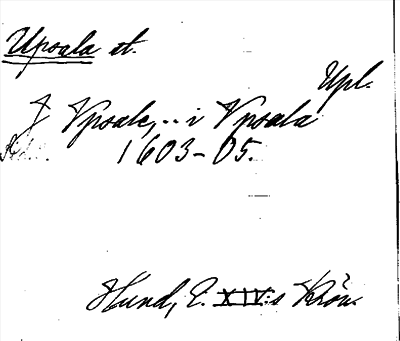 Upsala st.
Upl.
J Vpsale, .. i Vpsala
1603-05.
Hund, E. XIV:s Krön.